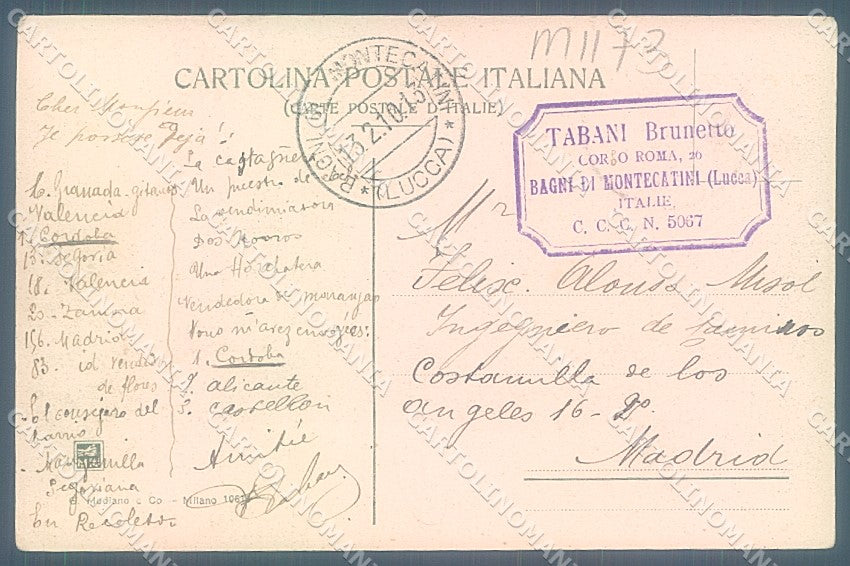 M1173
CARTOLINA POSTALE ITALIANA
(CARTE POSTALE D'ITALIE)
BAGNI DI MONTECATINI
13.2.10.15
* (LUCCA) *
TABANI Brunetto
CORSO ROMA, 20
BAGNI DI MONTECATINI (Lucca)
ITALIE
C. C. C. N. 5067
Cher Monsieur
Je possede Dejà!:
La castagnera
Un puesto de
La vendimiadora
Dos Moros
Una Horchatera
Vendedora de naranjas
Vous m'avez envoyées:
1. Cordoba
2. alicante
3. Castellon
Amitié
6. Granada. gitanos
Valencia
1. Cordoba
13. Segovia
18. Valencia
20. Zamora
156. Madrid
83. id vendedora
de flores
El consejero del
barrio
Segoviana
En Recoletos
Modiano e Co. - Milano
Mr
Felix. Alonso Misol
Ingegniero de Caminos
Costanilla de los
angeles 16 - 2º.
Madrid
CARTOLINOMANIA